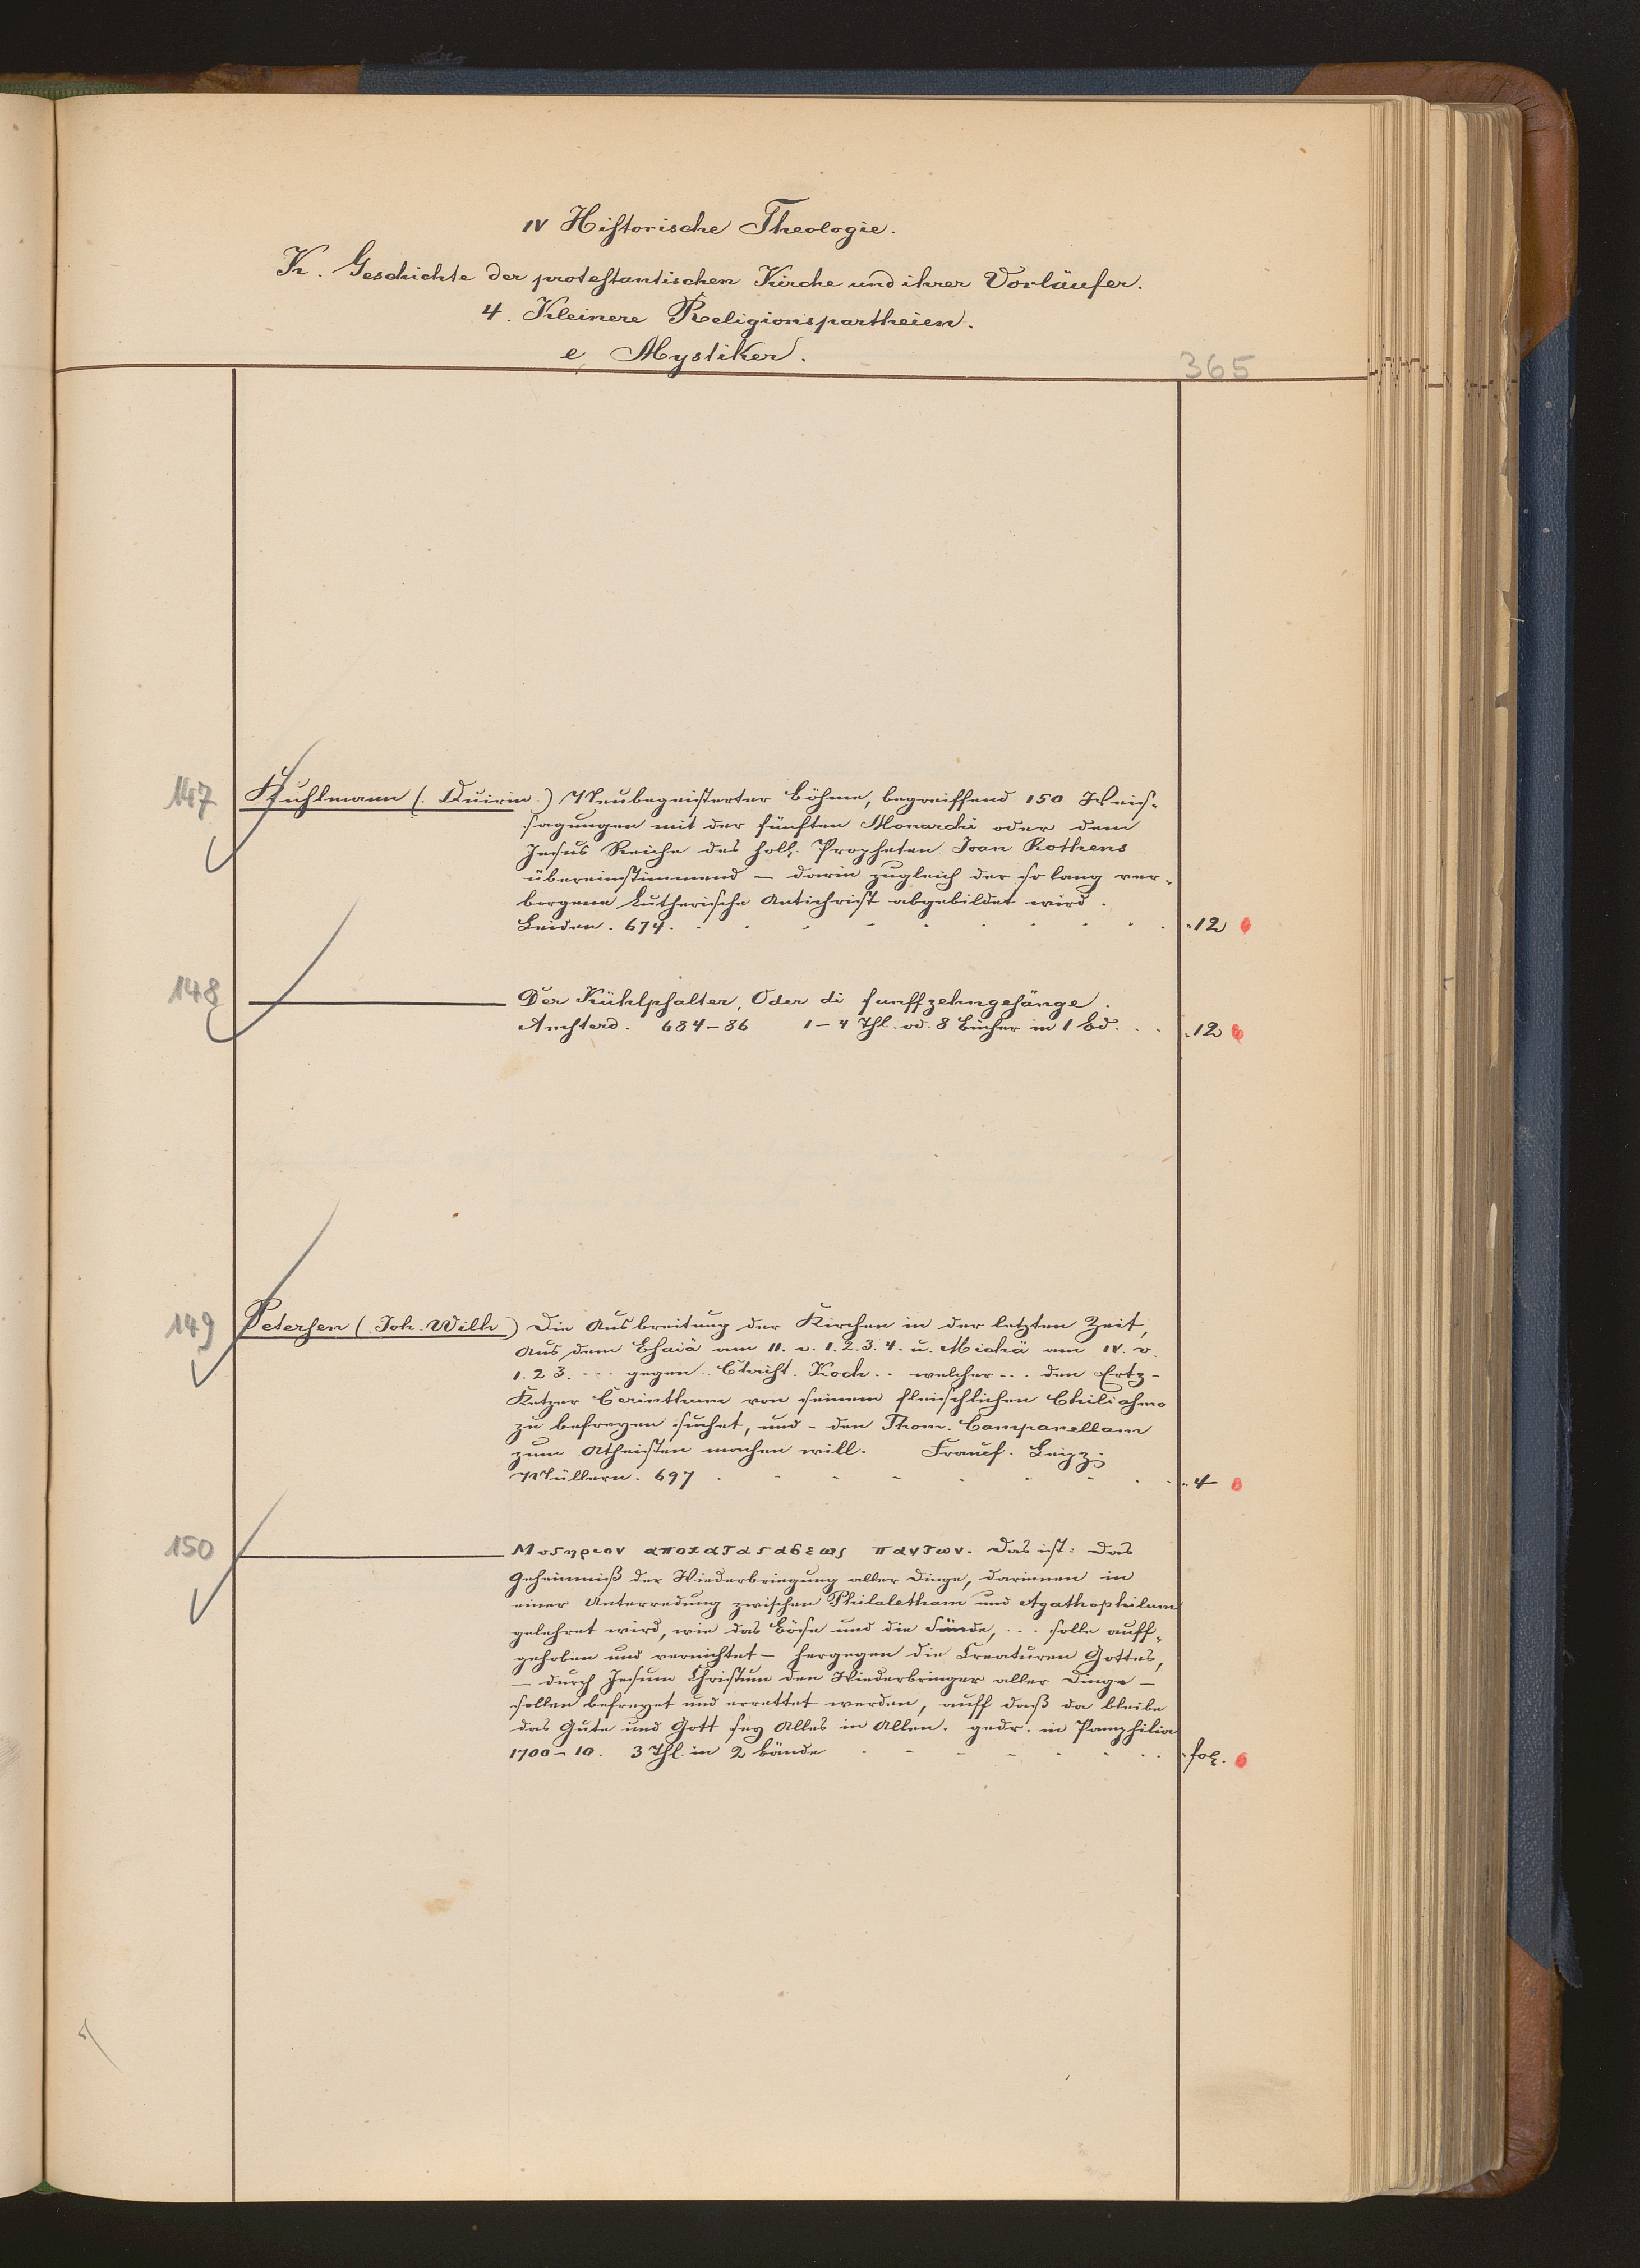 IV Historische Theologie.
K. Geschichte der protestantischen Kirche und ihrer Vorläufer.
4. Kleinere Religionspartheien.
e, Mystiker.
365
147 Kuhlmann (. Quirin.) Neubegeisterter Böhme, begreiffend 150 Weis-
sagungen mit der fünften Monarchi oder dem
Jesus Reiche des holl. Propheten Joan Rothens
übereinstimmend — darin zugleich der so lang ver-
borgene Lutherische Antichrist abgebildet wird.
Leiden. 674. 12
148 Der Kühlpsalter, Oder di funffzehngesänge.
Amsterd. 684–86 1–4 Thl. od. 8 Bücher in 1 Bd. 12
149 Petersen (. Joh. Wilh) Die Ausbreitung der Kirchen in der letzten Zeit,
Aus dem Esaiä am 11. v. 1. 2. 3. 4. u. Michä am IV. v.
1. 2 3. ... gegen .. Koch .. welcher ... den Ertz-
Ketzer Cerinthum von seinem fleischlichen Chiliasmo
zu befreyen suchet, und – den Thom. Campanellam
zum Atheisten machen will. Francf. Leipz.
Müllern. 697 4
150 Μυςηριον αποκαταςασεως παντων. Das ist: Das
Geheimniß der Wiederbringung aller Dinge, darinnen in
einer Unterredung zwischen Philaletham und Agathophilum
gelehret wird, wie das Böse und die Sünde, ... solle auff-
gehoben und vernichtet – hergegen die Creaturen Gottes,
— durch Jesum Christum den Wiederbringer aller Dinge —
sollen befreyet und errettet werden, auff daß da bleibe
das Gute und Gott sey Alles in Allen. gedr. in Pamphilia
1700–10. 3 Thl. in 2 Bände fol.